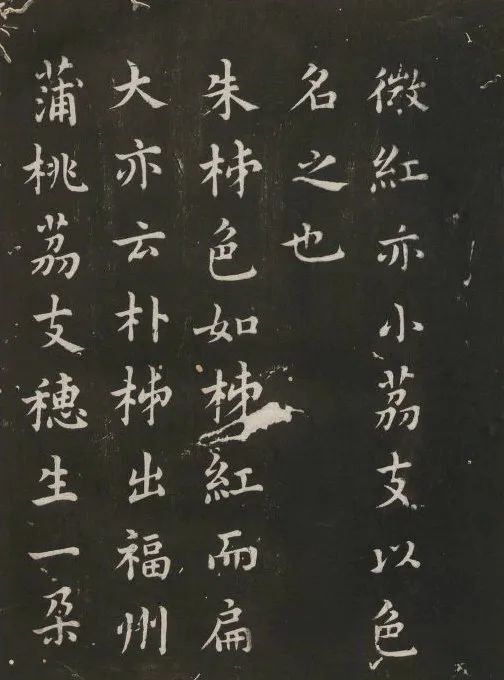 微紅亦小茘支以色
名之也
朱柹色如柹紅而扁
大亦云朴柹出福州
蒲桃茘支穗生一朵